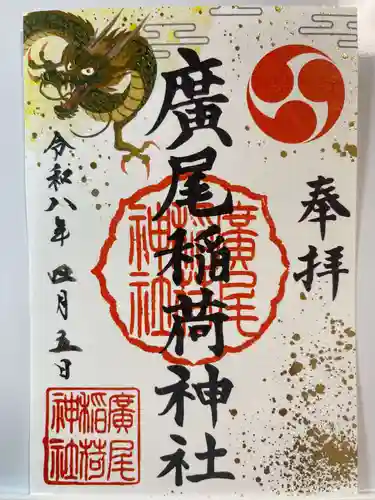 奉拝
廣尾稲荷神社
廣尾
稲荷
神社
令和八年 四月五日
廣尾
稲荷
神社